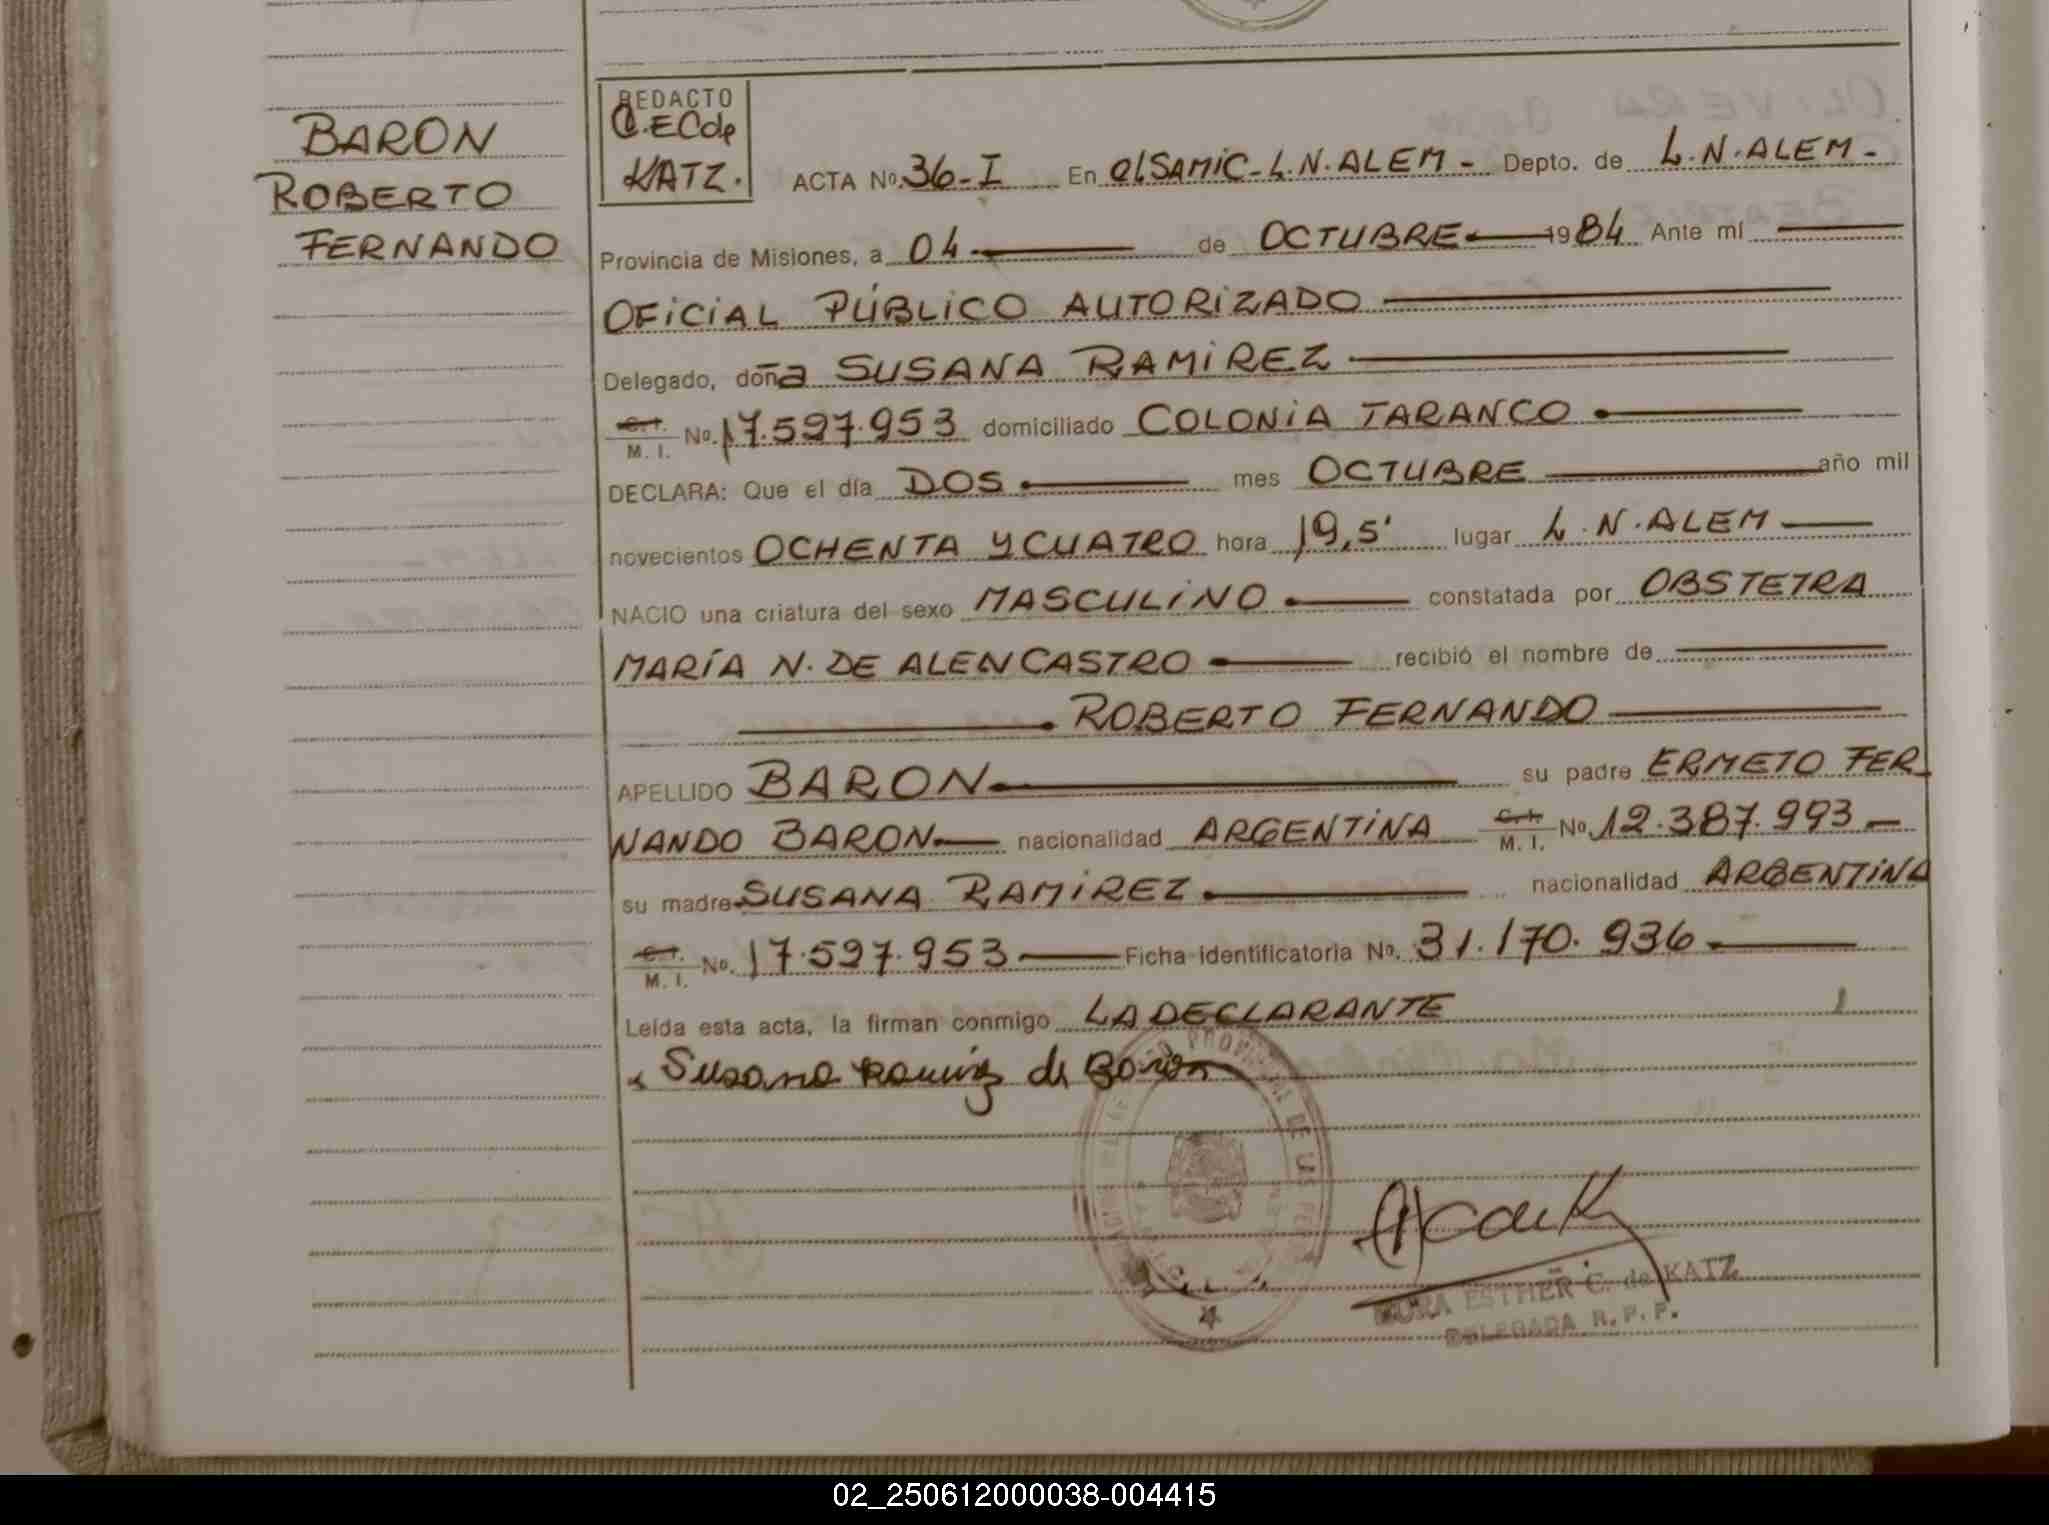 BARON
ROBERTO
FERNANDO
REDACTO
KATZ.
ACTA Nº 36-I En el SAMIC-L.N.ALEM- Depto. de L.N.ALEM-
Provincia de Misiones, a 04 de OCTUBRE 1984 Ante mí
OFICIAL PÚBLICO AUTORIZADO
Delegado, doña SUSANA RAMIREZ
C.I. M.I. Nº 17.597.953 domiciliado COLONIA TARANCO
DECLARA: Que el día DOS mes OCTUBRE año mil
novecientos OCHENTA Y CUATRO hora 19,5' lugar L.N.ALEM
NACIO una criatura del sexo MASCULINO constatada por OBSTETRA
MARÍA N. DE ALENCASTRO recibió el nombre de
ROBERTO FERNANDO
APELLIDO BARON su padre ERMETO FER
NANDO BARON nacionalidad ARGENTINA C.I. M.I. Nº 12.387.993-
su madre SUSANA RAMIREZ nacionalidad ARGENTINA
C.I. M.I. Nº 17.597.953 Ficha identificatoria Nº 31.170.936
Leída esta acta, la firman conmigo LA DECLARANTE
Susana Ramirez de Baron
ESTHER C. de KATZ
DELEGADA R.P.P.
02_250612000038-004415